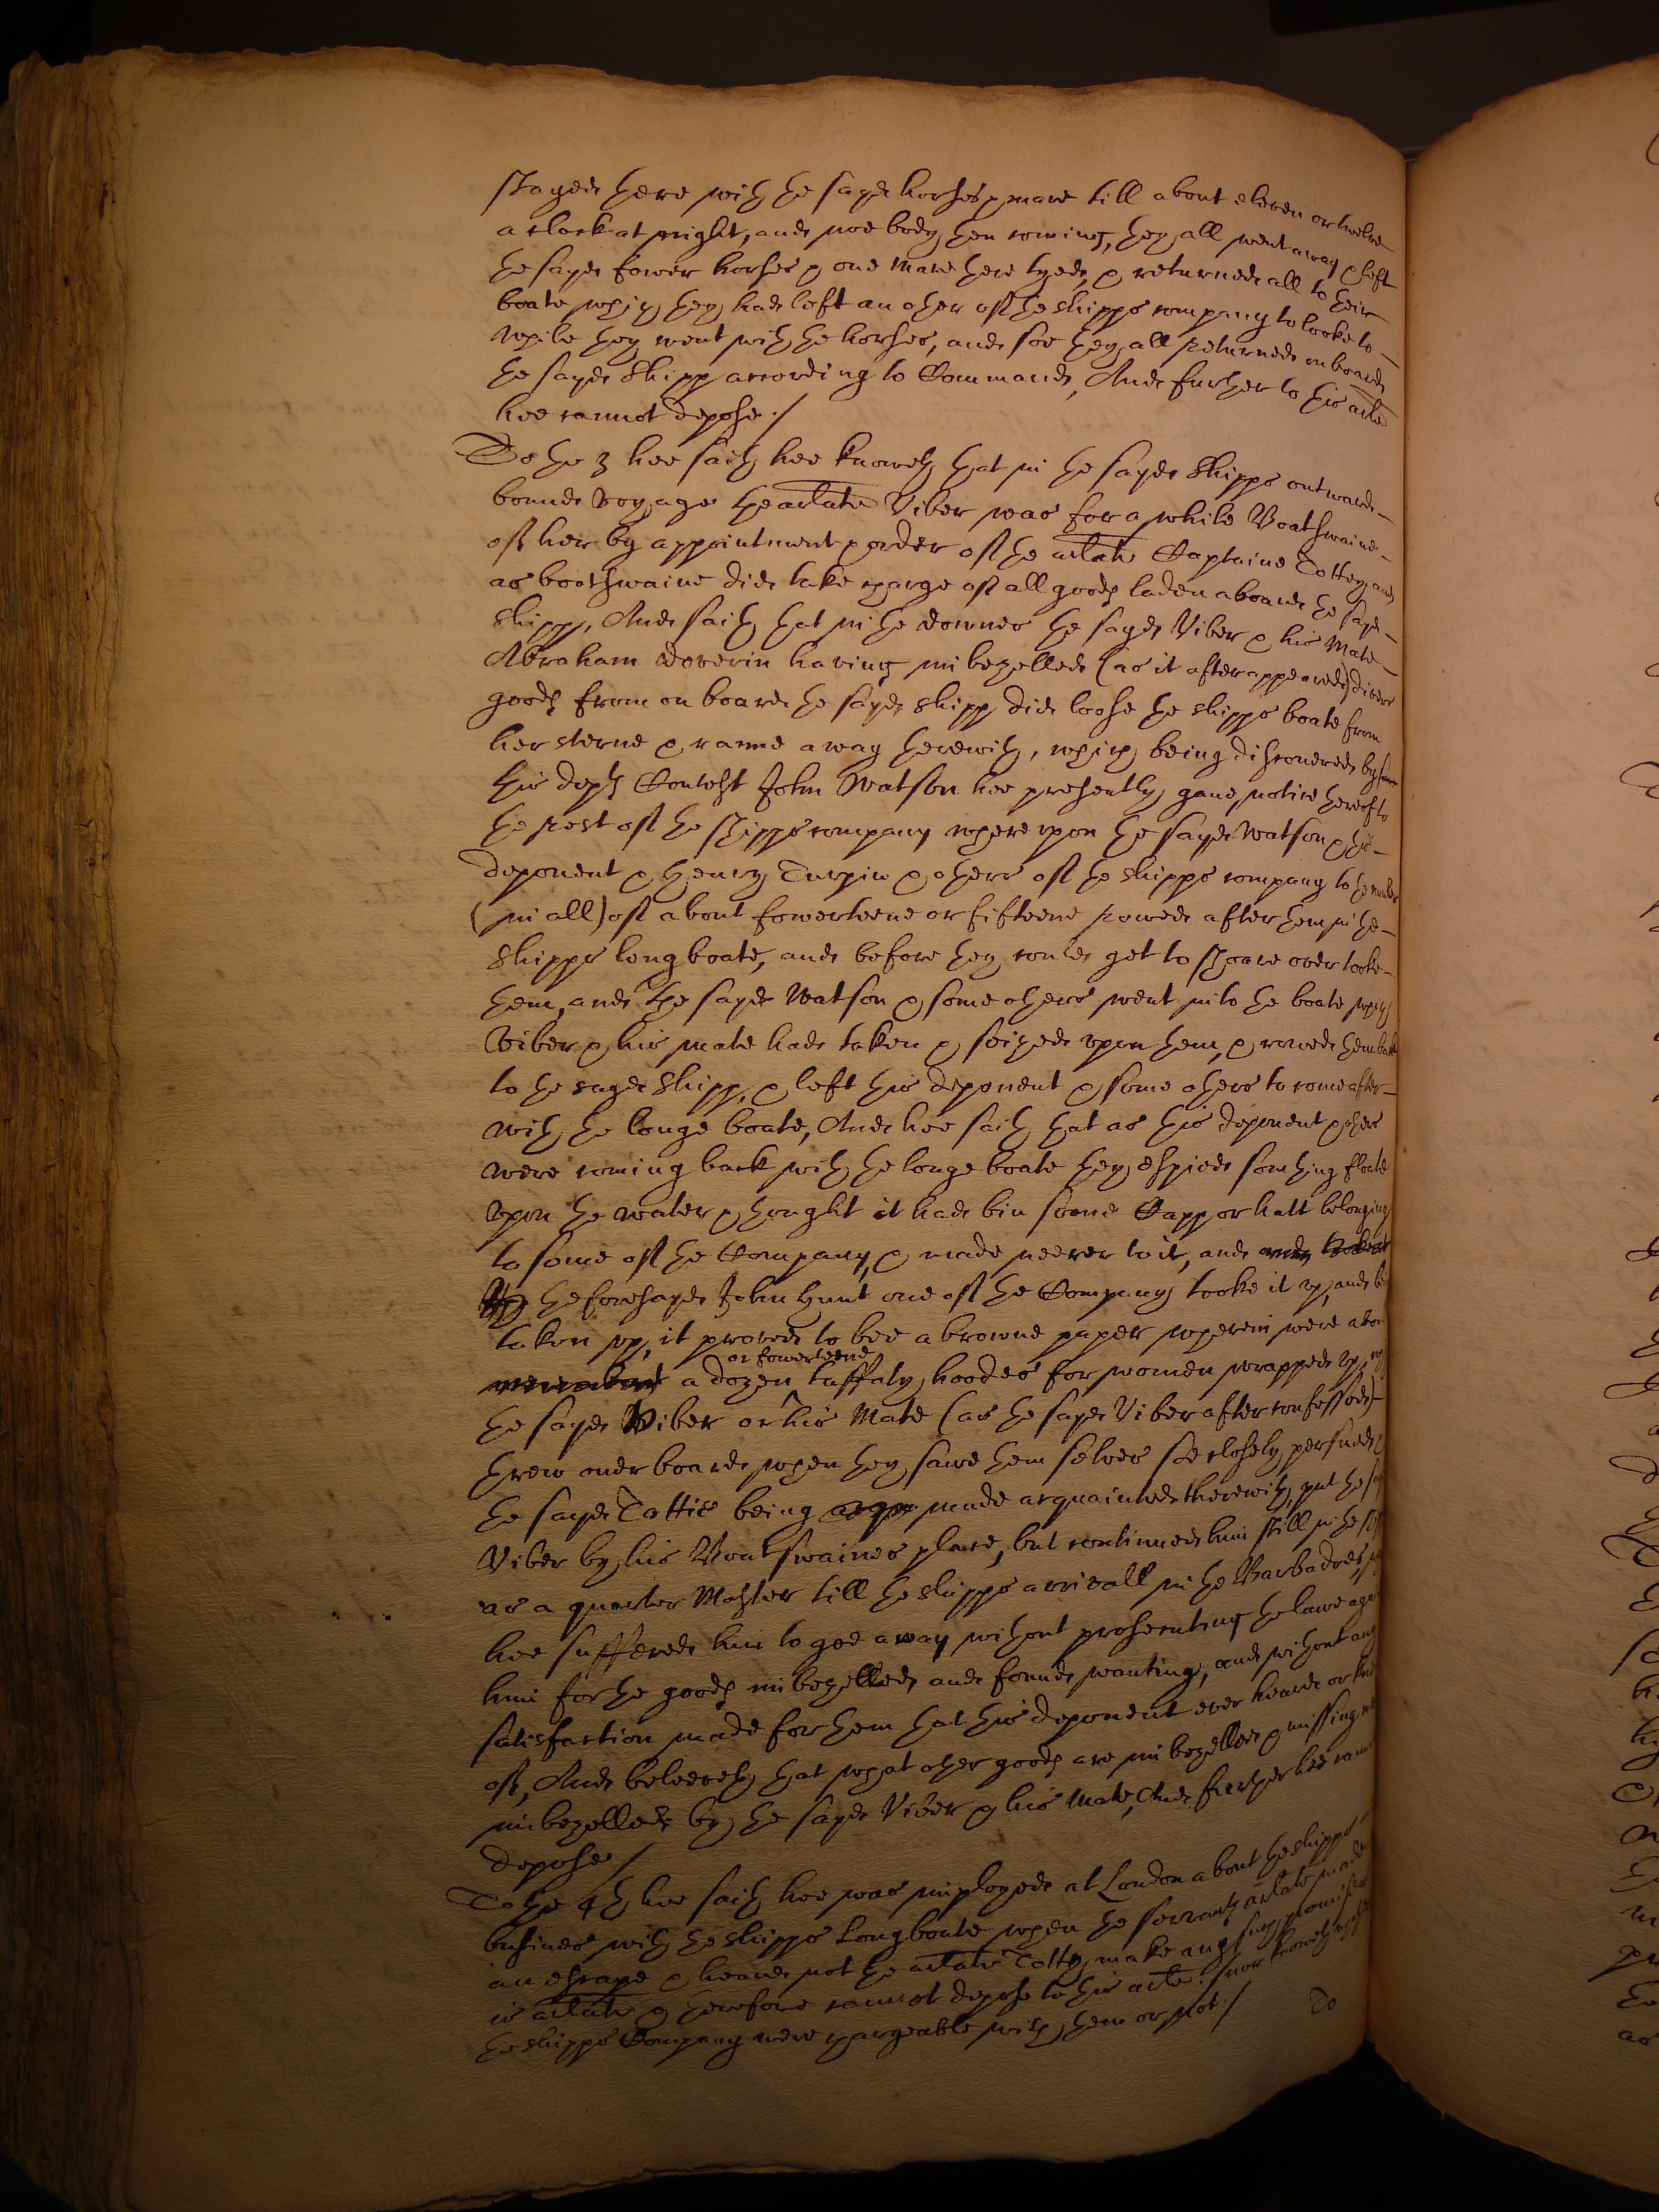 stayed there with the sayd horses & mare till about eleven or twelve
a clock at night, and noe body then coming, they all went away & left
the sayd fower horses & one mare there tyed, & returned all to their
boate which they had left an other of the shipps company to looke to
while they went with the horses, and soe they all returned on board
the sayd Shipp according to Command, And further to this arte
hee cannot depose ./
To the 3 hee saith hee knoweth that in the sayd Shipps outward
bound voyage the arlate Viber was for a while Boatswaine
of her by appointment & order of the arlate Captaine Tottey and
as boatswaine did take charge of all goods laden aboard the sayd
shipp, And saith that in the downes the sayd Viber & his Mate
Abraham doverin having imbezelled (as it after appeared) divers
goods from on board the sayd shipp did loose the shipps boate from
her sterne & ranne away therewith, which being discovered by
this depts Contest John Watson hee presently gave notice thereof to
the rest of the shipps company whereupon the sayd Watson & this
deponent & Henry Turpin & others of the shipps company to the number
(in all) of about fowerteene or fifteene rowed after them in the
shipps longboate, and before they could get to shoare over tooke
them, and the sayd Watson & some others went into the boate which
Viber & his mate had taken & seized upon them, & rowed them back
to the sayd shipp, & left this deponent & some others to come after
with the longe boate, And hee saith that as this deponent & others
were coming back with the longe boate they espied somthing floate
upon the water & thought it had bin some Capp or hatt belonging
to some of the Company, & made neerer to it, and
the foresayd John Hunt one of the Company tooke it up, and being
taken up, it proved to bee a browne paper wherein were about
a dozen or fowerteene taffaty hoodes for women wrapped up
the sayd Viber or his Mate (as the sayd Viber after confessed)
threw over board when they sawe them selves soe closely persued, &
the sayd Tottie being made acquainted therewith, put the sayd
Viber by his Boatswaines place, but continued him still in the
as a quarter Master till the shipps arrivall in the Barbadoes,
hee suffered him to goe away without prosecuting the lawe against
him for the goods imbezelled and found wanting, and without any
satisfaction made for them that this deponent ever heard or knew
of, And beleeveth that what other goods are imbezelled & missing were
imbezelled by the sayd Viber & his Mate, And further hee cannot
depose /
To the 4th hee saith hee was imployed at London about the shipps
busines with the shipps longboate when the servants arlate made
an escape & heard not the arlate Totty make any such promise as
is arlate & therefore cannot depose to this arte. nor knoweth whether
the shipps Company were chargeable with them or not ./
To